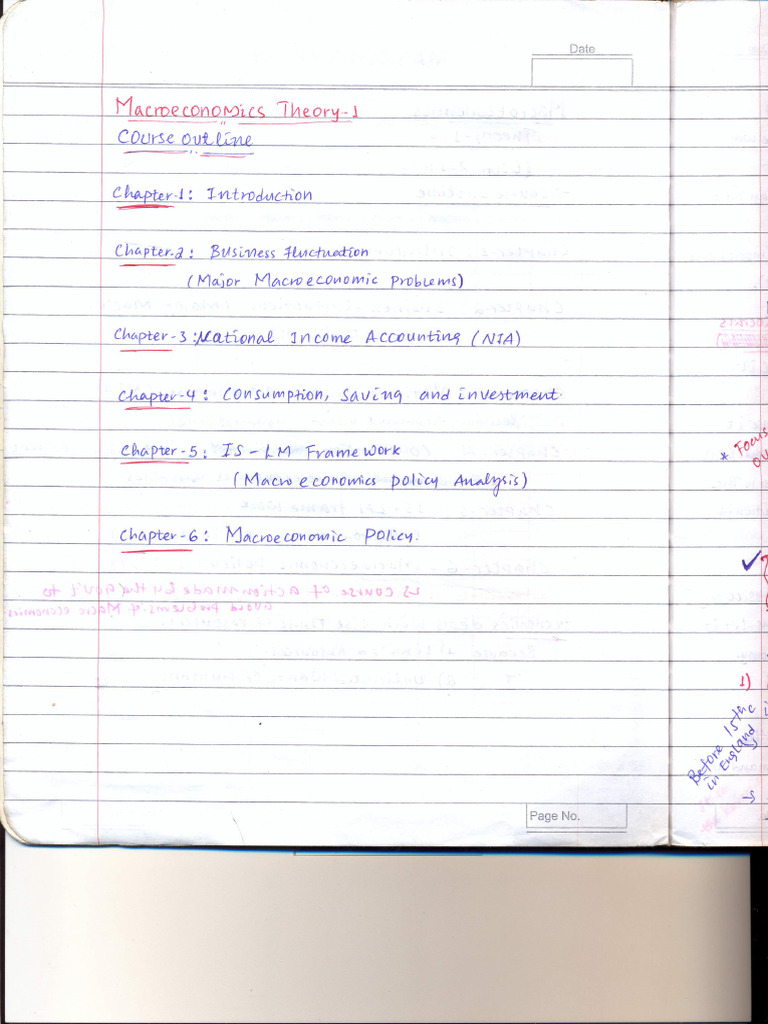 Date
Macroeconomics Theory-1
Course outline
Chapter-1: Introduction
Chapter-2: Business fluctuation
(Major Macroeconomic problems)
Chapter-3: National Income Accounting (NIA)
Chapter-4: Consumption, Saving and investment.
Chapter-5: IS-LM Framework
(Macroeconomics policy Analysis)
Chapter-6: Macroeconomic Policy.
↳ course of action made by the Gov't to
avoid problems of Macro economics
* Focus
1)
Before 15the
in England
Page No.